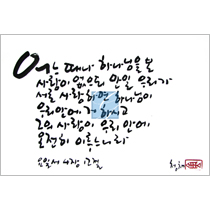 어느 때나 하나님을 본
사람이 없으되 만일 우리가
서로 사랑하면 하나님이
우리 안에 거하시고
그의 사랑이 우리 안에
온전히 이루느니라
요일서 4장 12절